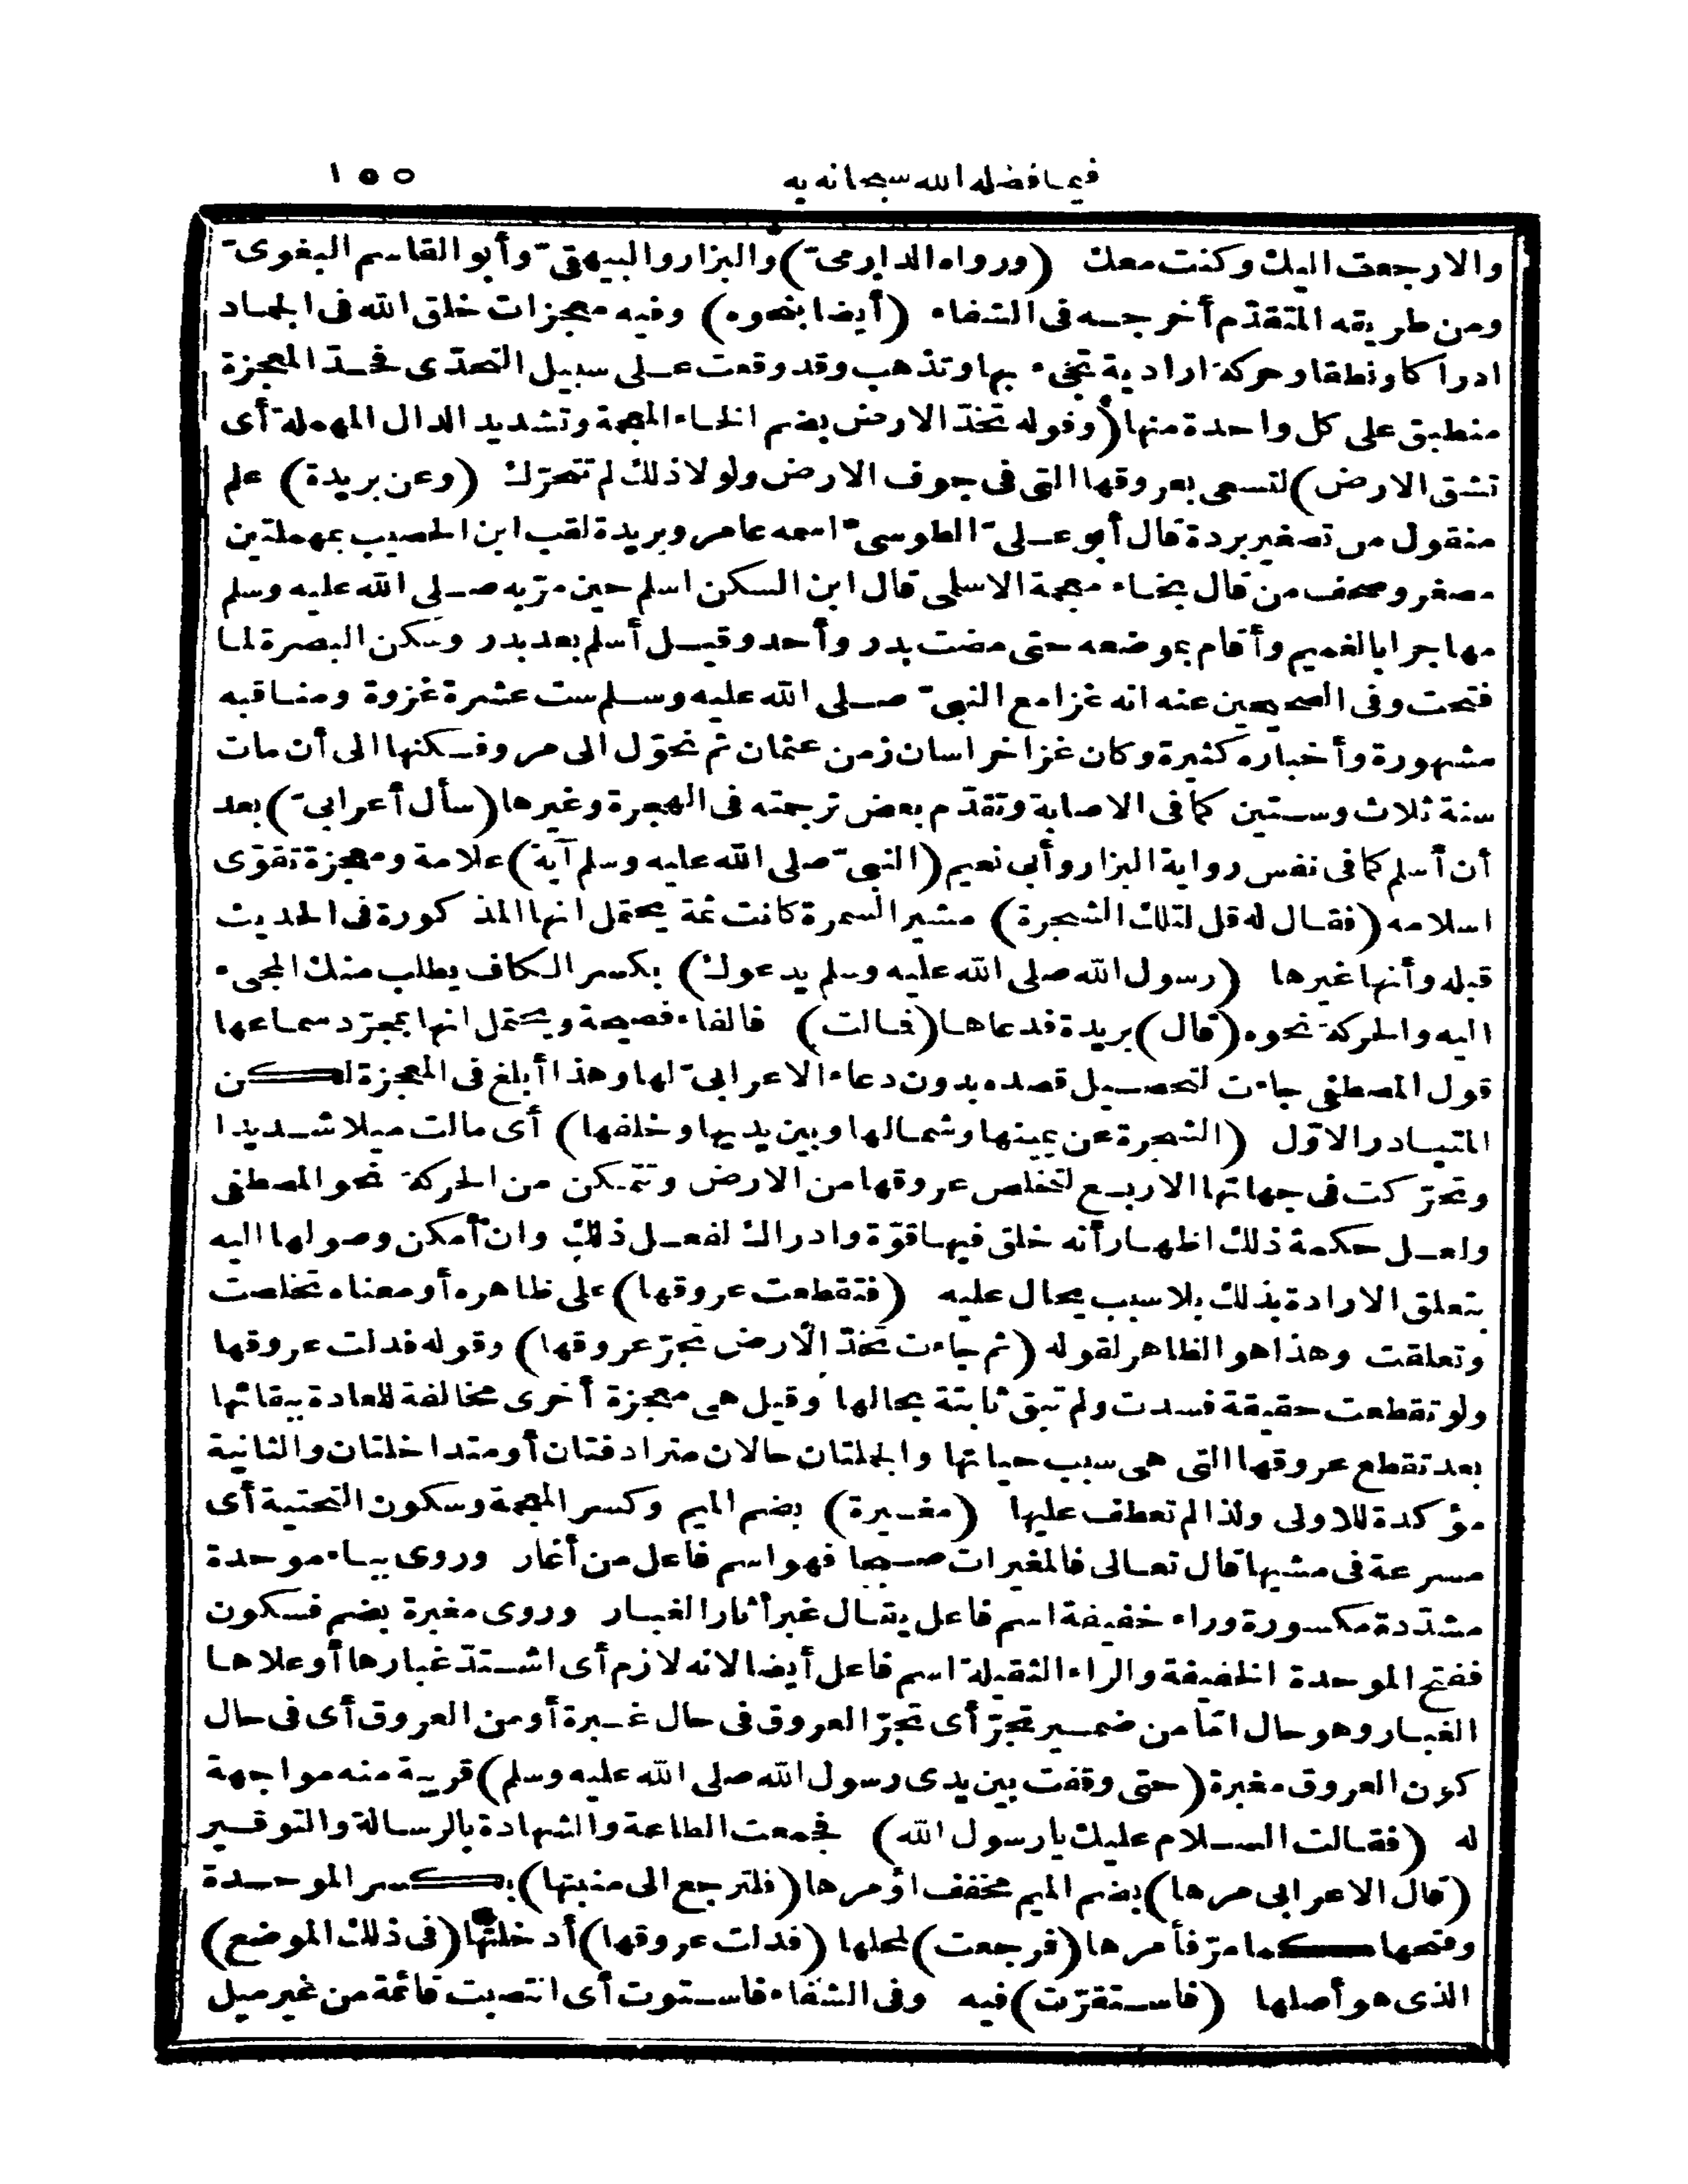 فيما فضله الله سبحانه به ١٥٥
والارجعت اليك وكنت معك (ورواه الدارمىّ) والبزار والبيهقىّ وأبو القاسم البغوىّ
ومن طريقه المتقدّم أخرجه فى الشفاء (أيضا بنحوه) وفيه معجزات خلق الله فى الجماد
ادراكا ونطقا وحركة ارادية تجىء بها وتذهب وقد وقعت على سبيل التحدّى فحدّ المعجزة
منطبق على كل واحدة منها (وقوله تخدّ الارض بضم الخاء المعجمة وتشديد الدال المهملة أى
تشق الارض) لتسعى بعروقها التى فى جوف الارض ولولا ذلك لم تتحرّك (وعن بريدة) علم
منقول من تصغير بردة قال أبو علىّ الطوسىّ اسمه عامر وبريدة لقب ابن الحصيب بمهملتين
مصغر وصحف من قال بخاء معجمة الاسلمى قال ابن السكن اسلم حين مرّ به صلى الله عليه وسلم
مهاجرا بالغميم وأقام بموضعه حتى مضت بدر وأحد وقيل أسلم بعد بدر وسكن البصرة لما
فتحت وفى الصحيحين عنه انه غزا مع النبىّ صلى الله عليه وسلم ست عشرة غزوة ومناقبه
مشهورة وأخباره كثيرة وكان غزا خراسان زمن عثمان ثم تحوّل الى مرو فسكنها الى أن مات
سنة ثلاث وستين كما فى الاصابة وتقدّم بعض ترجمته فى الهجرة وغيرها (سأل أعرابىّ) بعد
أن أسلم كما فى نفس رواية البزار وأبى نعيم (النبىّ صلى الله عليه وسلم آية) علامة ومعجزة تقوّى
اسلامه (فقال له قل لتلك الشجرة) مشيرا لسمرة كانت ثمة يحتمل انها المذكورة فى الحديث
قبله وأنها غيرها (رسول الله صلى الله عليه وسلم يدعوك) بكسر الكاف يطلب منك المجىء
اليه والحركة نحوه (قال) بريدة فدعاها (فمالت) فالفاء فصيحة ويحتمل انها بمجرّد سماعها
قول المصطفى جاءت لتحصيل قصده بدون دعاء الاعرابىّ لها وهذا أبلغ فى المعجزة لكن
المتبادر الاوّل (الشجرة عن يمينها وشمالها وبين يديها وخلفها) أى مالت ميلا شديدا
وتحرّكت فى جهاتها الاربع لتخلص عروقها من الارض وتتمكن من الحركة نحو المصطفى
ولعل حكمة ذلك اظهار أنه خلق فيها قوّة وادراك لفعل ذلك وان أمكن وصولها اليه
بتعلق الارادة بذلك بلا سبب يحال عليه (فتقطعت عروقها) على ظاهره أو معناه تخلصت
وتعلقت وهذا هو الظاهر لقوله (ثم جاءت تخدّ الارض تجرّ عروقها) وقوله فدلت عروقها
ولو تقطعت حقيقة فسدت ولم تبق ثابتة بحالها وقيل هى معجزة أخرى مخالفة للعادة ببقائها
بعد تقطع عروقها التى هى سبب حياتها والجملتان حالان مترادفتان أو متداخلتان والثانية
مؤكدة للاولى ولذا لم تعطف عليها (مغيرة) بضم الميم وكسر المعجمة وسكون التحتية أى
مسرعة فى مشيها قال تعالى فالمغيرات صبحا فهو اسم فاعل من أغار وروى بباء موحدة
مشدّدة مكسورة وراء خفيفة اسم فاعل يقال غبر أثار الغبار وروى مغبرة بضم فسكون
ففتح الموحدة الخفيفة والراء الثقيلة اسم فاعل أيضا لانه لازم أى اشتدّ غبارها أو علاها
الغبار وهو حال امّا من ضمير تجرّ أى تجرّ العروق فى حال غبرة أو من العروق أى فى حال
كون العروق مغبرة (حتى وقفت بين يدى رسول الله صلى الله عليه وسلم) قريبة منه مواجهة
له (فقالت السلام عليك يا رسول الله) فجمعت الطاعة والشهادة بالرسالة والتوقير
(قال الاعرابى مرها) بضم الميم مخفف اؤمرها (فلترجع الى منبتها) بكسر الموحدة
وفتحها كما مرّ فأمرها (فرجعت) لمحلها (فدلت عروقها) أدخلتها (فى ذلك الموضع)
الذى هو أصلها (فاستقرّت) فيه وفى الشفاء فاستوت أى انتصبت قائمة من غير ميل